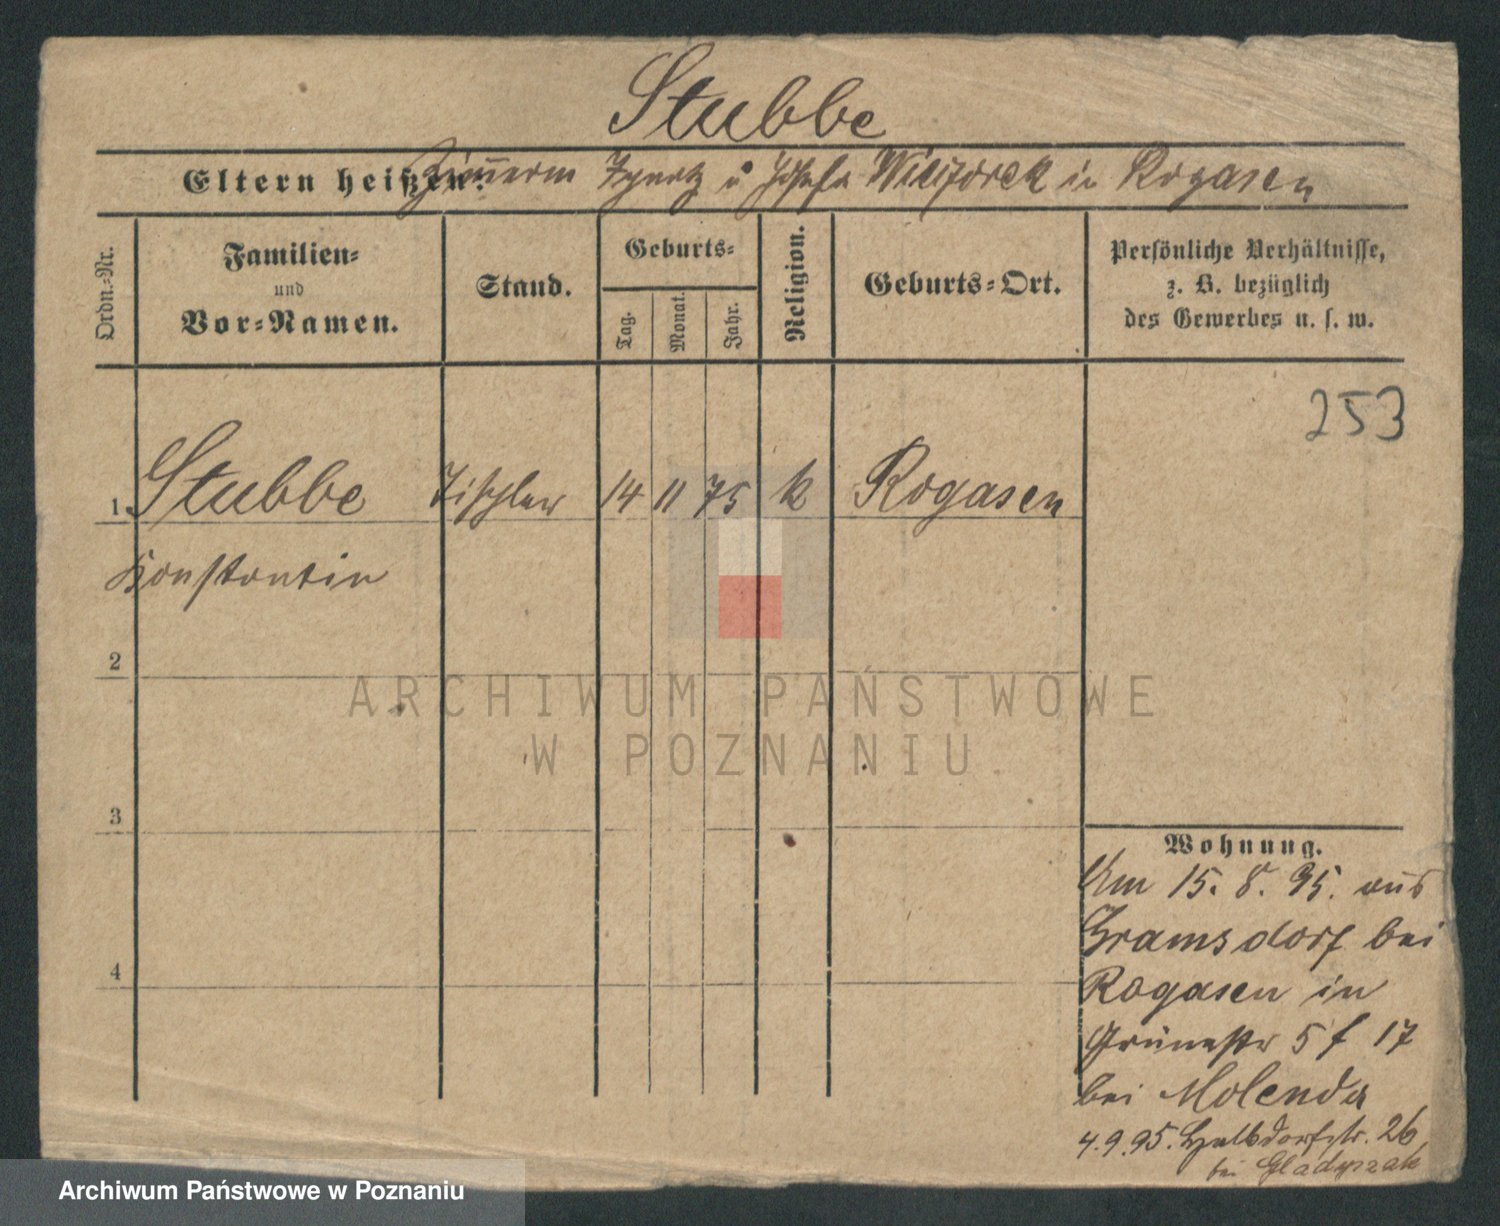 Stubbe
Eltern heißen: Zimmerm Ignatz u Josefa in Rogasen
Ordn.-Nr.
Familien-
und
Vor-Namen.
Stand.
Geburts-
Tag.
Monat.
Jahr.
Religion.
Geburts-Ort.
Persönliche Verhältnisse,
z. B. bezüglich
des Gewerbes u. s. w.
253
1 Stubbe Tischler 14 11 75 k Rogasen
Konstantin
2
3
4
Wohnung.
Am 15. 8. 95. aus
Gramsdorf bei
Rogasen in
Grünestr 5 f 17
bei Molenda
4.9.95. Halbdorfstr. 26
bei Gladyszak
ARCHIWUM PAŃSTWOWE
W POZNANIU
Archiwum Państwowe w Poznaniu